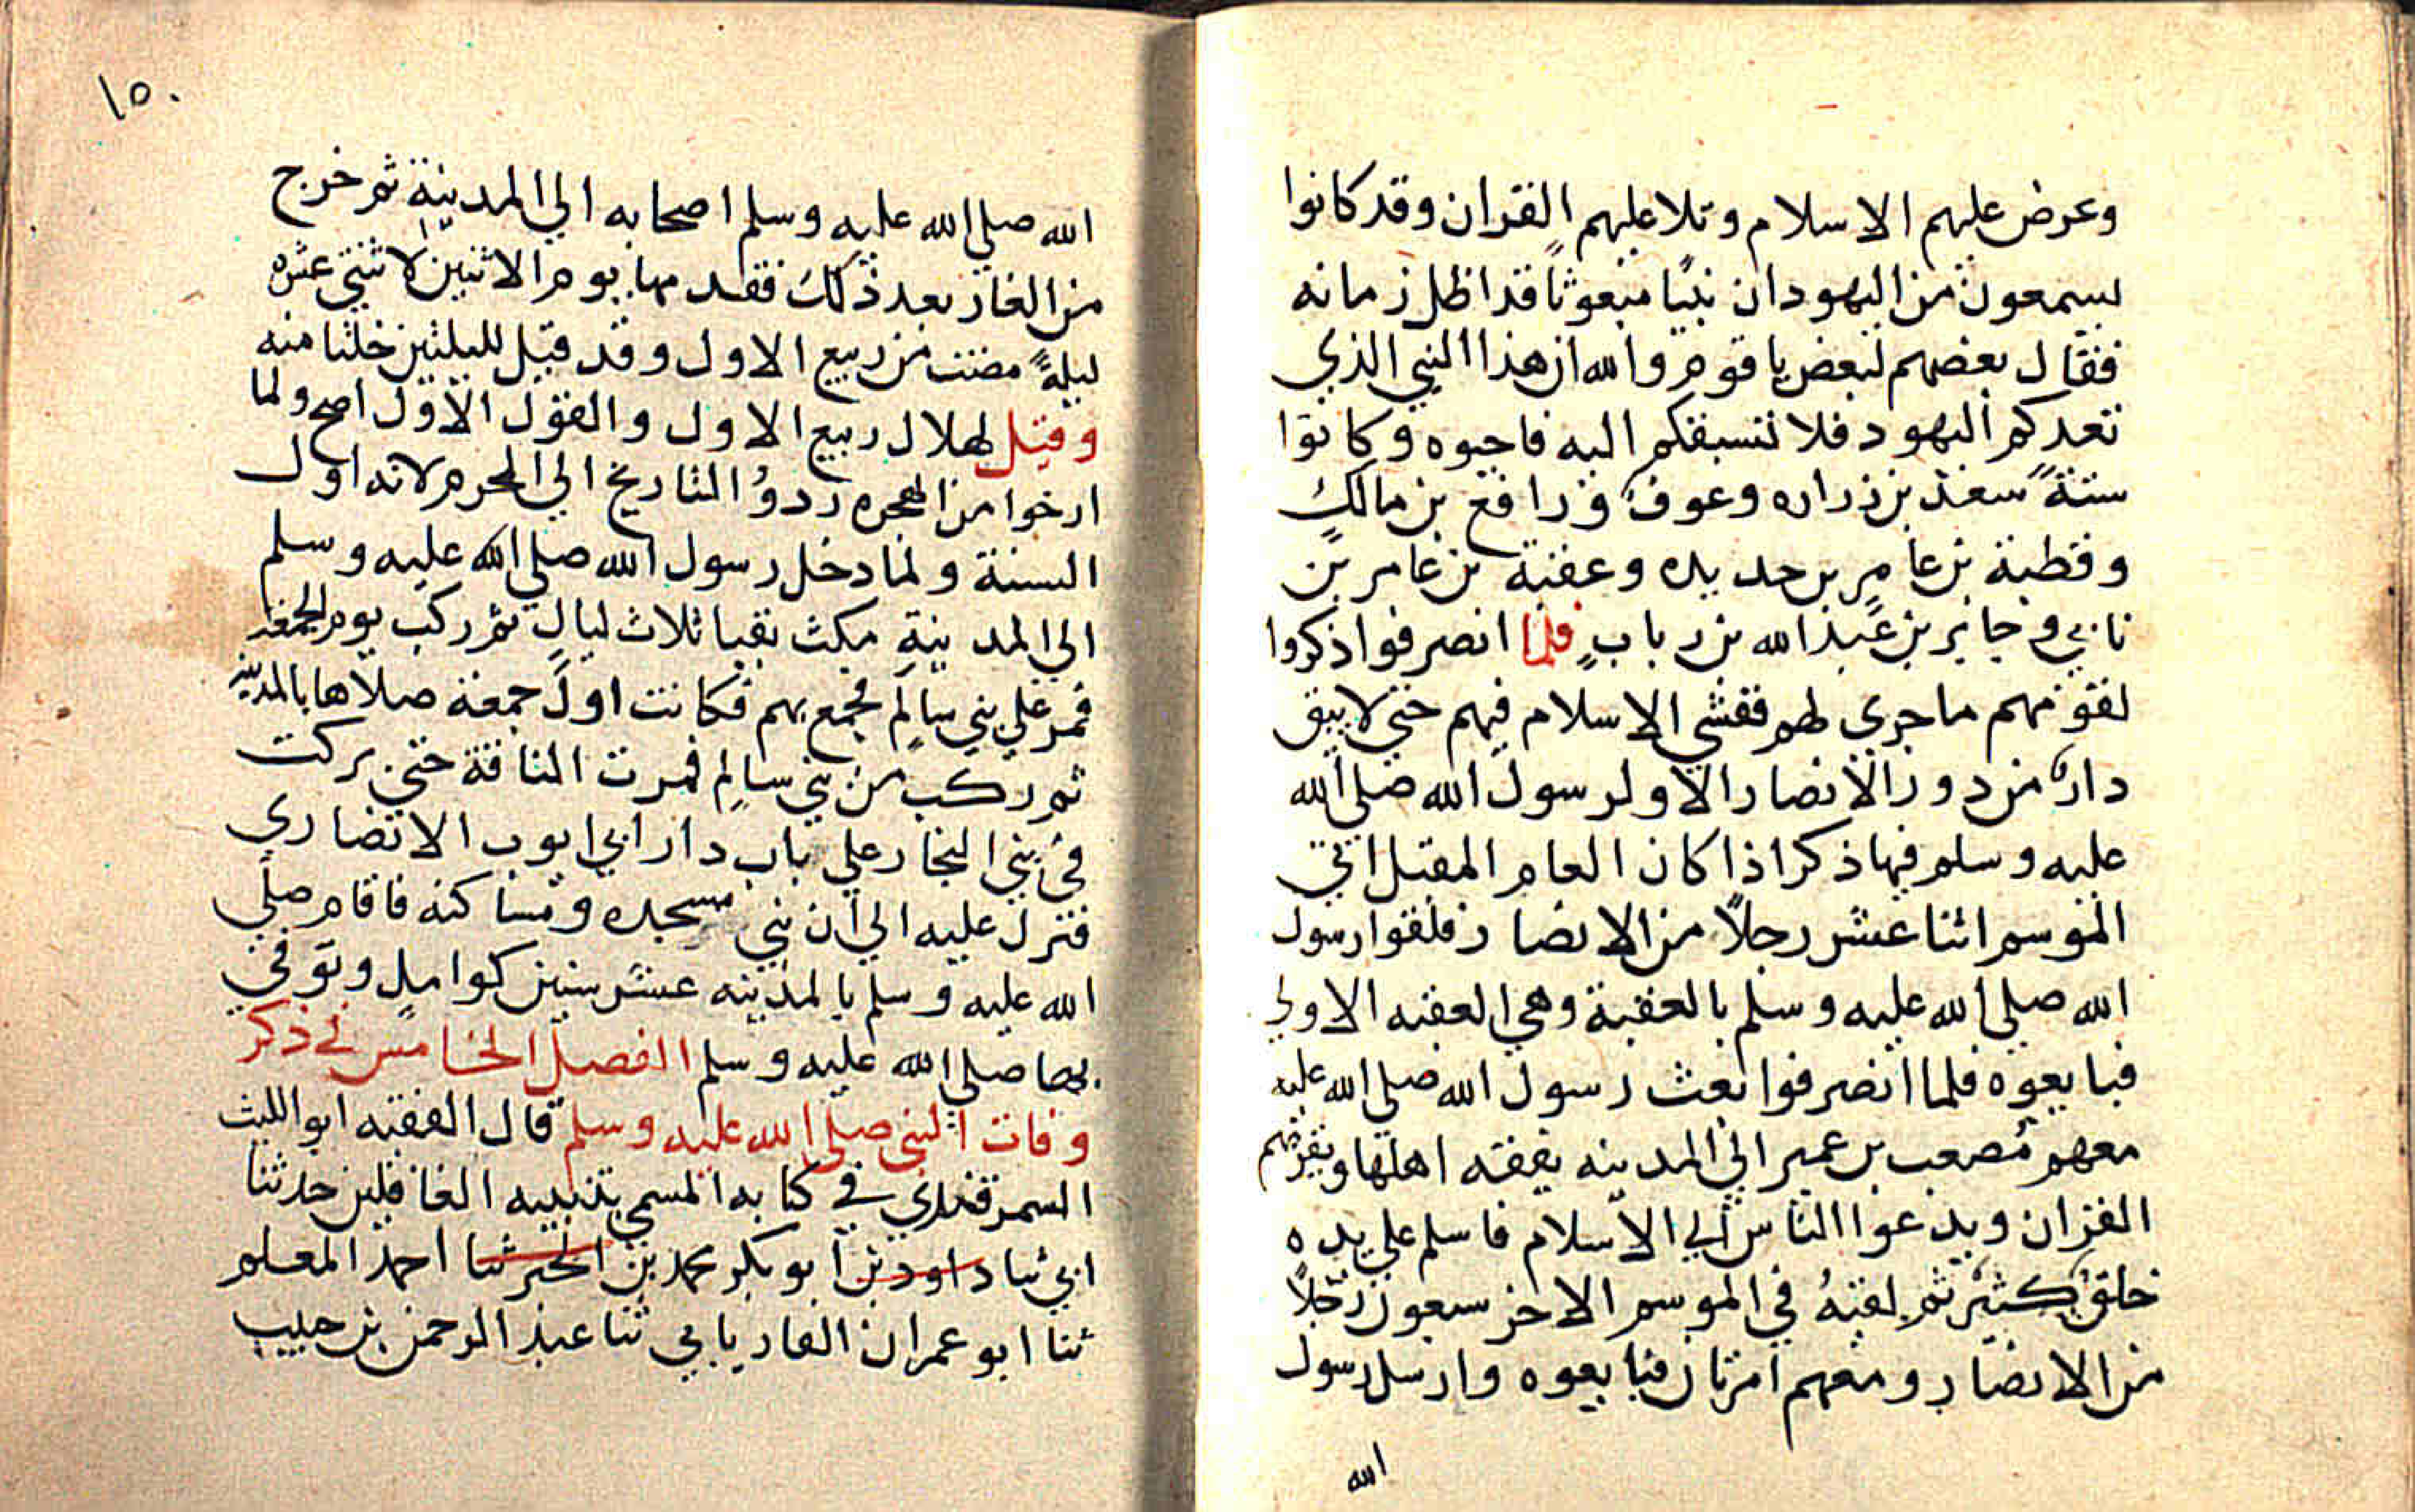 وعرض عليهم الاسلام وتلا عليهم القران وقد كانوا
يسمعون من اليهود ان نبيًا مبعوثًا قد اظل زمانه
فقال بعضهم لبعض يا قوم والله ان هذا النبي الذي
تعدكم اليهود فلا تسبقكم اليه فاجبوه وكانوا
ستةً سعد بن زراره وعوف ورافع بن مالك
وقطبة بن عامرِ بن حديده وعقبة بن عامر بن
نابي وجابر بن عبد الله بن ربابٍ فلما انصرفوا ذكروا
لقومهم ما جري لهم ففشي الاسلام فيهم حتي لا يبق
دارٌ من دور الانصار الا ولرسول الله صلي الله
عليه وسلم فيها ذكر اذا كان العام المقبل اتي
الموسم اثنا عشر رجلاً من الانصار فلقوا رسول
الله صلي الله عليه وسلم بالعقبة وهي العقبه الاولي
فبايعوه فلما انصرفوا بعث رسول الله صلي الله عليه
معهم مُصعب بن عمير الي المدينه يفقه اهلها ويقرئهم
القران ويدعوا الناس الي الاسلام فاسلم علي يده
خلقٌ كثيرٌ ثم لقيهُ في الموسم الاخر سبعون رجلاً
من الانصار ومعهم امرتان فبايعوه وارسل رسول
الله
١٥٠
الله صلي الله عليه وسلم اصحابه الي المدينةِ ثم خرج
من الغار بعد ذلك فقدمها يوم الاثنين لاثنتي عشره
ليلةً مضت من ربيع الاول وقد قيل لليلتين خلتا منه
وقيل لهلال ربيع الاول والقول الاول اصح ولما
ارخوا من الهجره ردوُ التاريخ الي المحرم لانه اول
السنة ولما دخل رسول الله صلي الله عليه وسلم
الي المدينةِ مكث بقبا ثلاث ليالٍ ثم ركب يوم الجمعة
فمر علي بني سالم فجمع بهم فكانت اول جمعة صلاها بالمدينه
ثم ركب من بني سالم فمرت الناقة حتي بركت
في بني النجار علي باب دار ابي ايوب الانصاري
فنزل عليه الي ان بني مسجده ومساكنه فاقام صلي
الله عليه وسلم بالمدينه عشر سنين كواملٍ وتوفي
بها صلي الله عليه وسلم الفصل الخامس في ذكر
وفات النبي صلي الله عليه وسلم قال الفقيه ابو الليث
السمرقندي في كتابه المسمي بتنبيه الغافلين حدثنا
ابي ثنا داود بن ابو بكر محمد بن الخبر ثنا احمد المعلم
ثنا ابو عمران الفاريابي ثنا عبد الرحمن بن حبيب